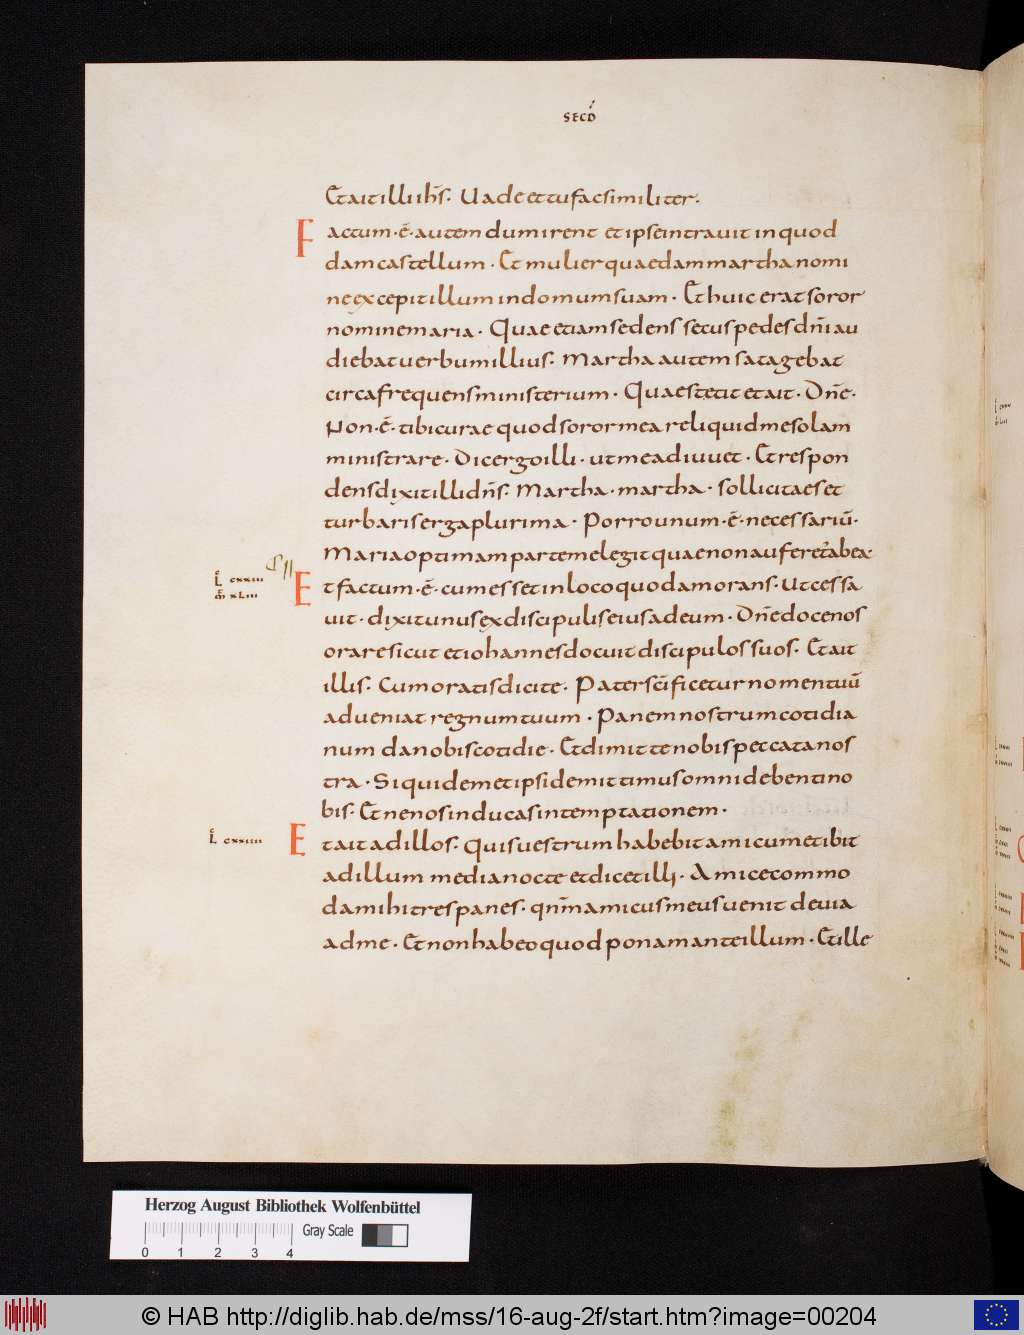 SECD̄
Et ait illi ih̄s. Uade et tu fac similiter.
Factum. ē. autem dum irent et ipse intrauit in quod
dam castellum. Et mulier quaedam martha nomi
ne excepit illum in domum suam. Et huic erat soror
nomine maria. Quae etiam sedens secus pedes dn̄i au
diebat uerbum illius. Martha autem satagebat
circa frequens ministerium. Quae stetit et ait. Dn̄e.
Non. ē. tibi curae quod soror mea reliquid me solam
ministrare. Dic ergo illi. ut me adiuuet. Et respon
dens dixit illi dn̄s. Martha. martha. sollicita es et
turbaris erga plurima. Porro unum. ē. necessariū.
Maria optimam partem elegit quae non auferet᷑ ab ea.
L̄ cxxiii
m̄ xliii
Et factum. ē. cum esset in loco quodam orans. Ut cessa
uit. dixit unus ex discipulis eius ad eum. Dn̄e doce nos
orare sicut et iohannes docuit discipulos suos. Et ait
illis. Cum oratis dicite. Pater sc̄ificetur nomen tuū
adueniat regnum tuum. Panem nostrum cotidia
num da nobis cotidie. Et dimitte nobis peccata nos
tra. Siquidem et ipsi demittimus omni debenti no
bis. Et ne nos inducas in temptationem.
L̄ cxxiiii
Et ait ad illos. Quis uestrum habebit amicum et ibit
ad illum media nocte et dicet illi. Amice commo
da mihi tres panes. qn̄m amicus meus uenit de uia
ad me. Et non habeo quod ponam ante illum. Et ille
Herzog August Bibliothek Wolfenbüttel
Gray Scale
0 1 2 3 4
© HAB http://diglib.hab.de/mss/16-aug-2f/start.htm?image=00204